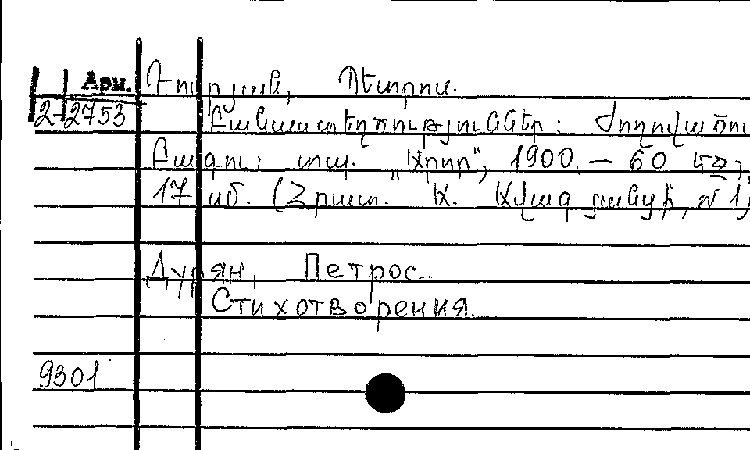 Арм. Դուրյան, Պետրոս.
2-2753 Բանաստեղծություններ: Ժողովածու
Բագու, տպ. „Արոր", 1900. – 60 էջ;
17 սմ. (Հրատ. Ա. Այվազյանցի, № 1)
Дурян, Петрос.
Стихотворения.
9301